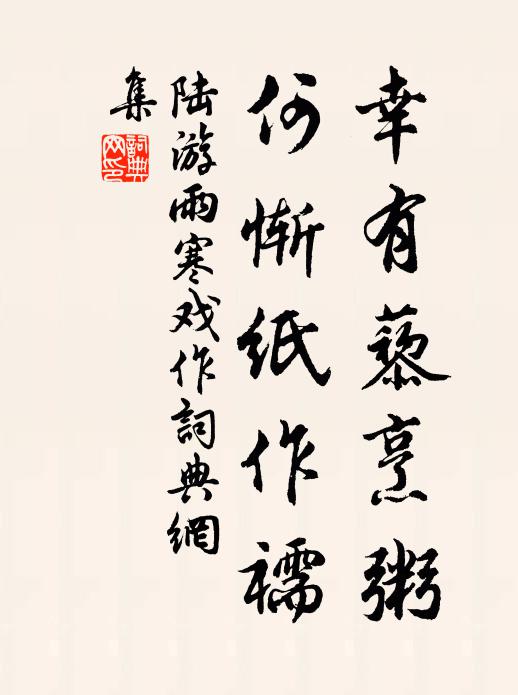 幸有藜烹粥
何惭紙作襦
陆游雨寒戏作詞典網
集
詞典
网印